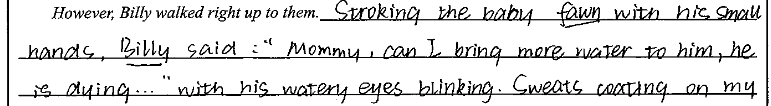 However, Billy walked right up to them. Stroking the baby fawn with his small
hands, Billy said : " Mommy, can I bring more water to him, he
is dying... " with his watery eyes blinking. Sweats coating on my